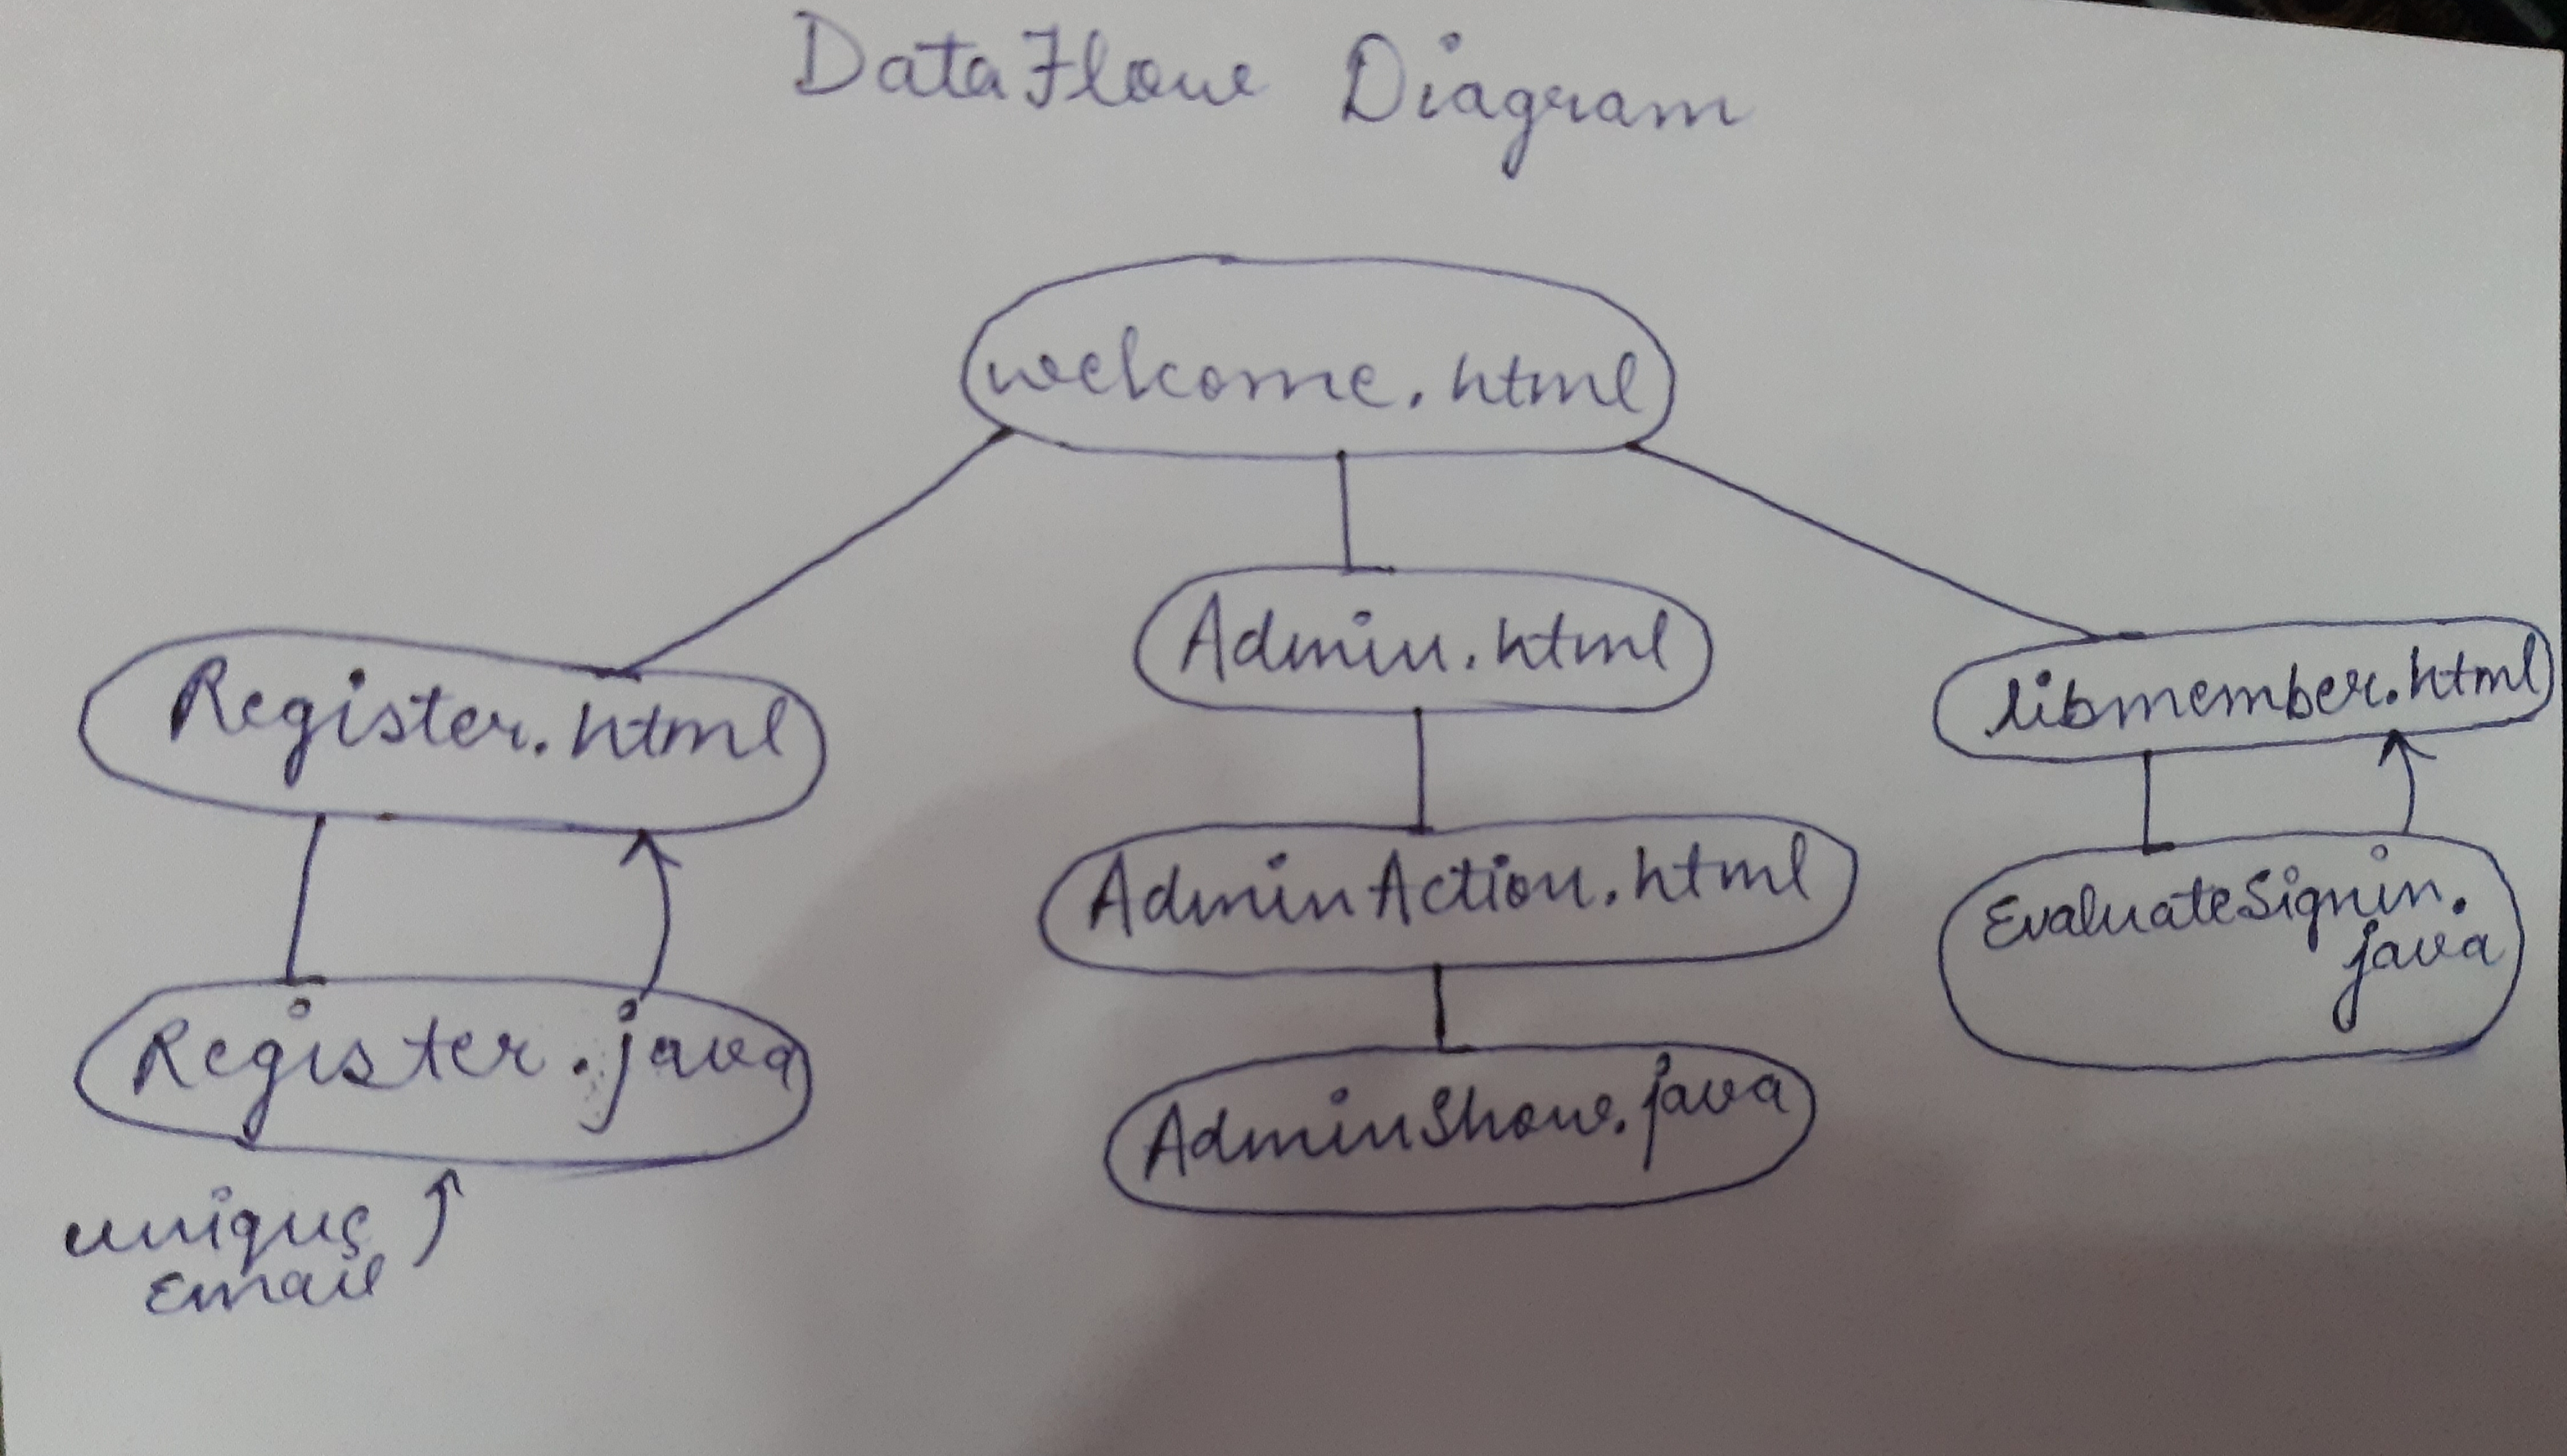 DataFlow Diagram
welcome.html
Register.html
Admin.html
libmember.html
AdminAction.html
EvaluateSignin.
java
Register.java
AdminShow.java
unique
Email